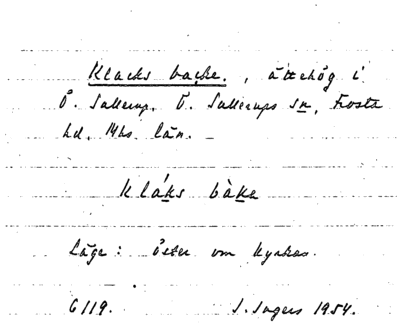 Klacks backe., ättehög i
Ö. Sallerup, Ö. Sallerups sn, Frosta
hd, Mhs län. –
kláks bàke
Läge: öster om kyrkan.
6119. S. Ingers 1954.